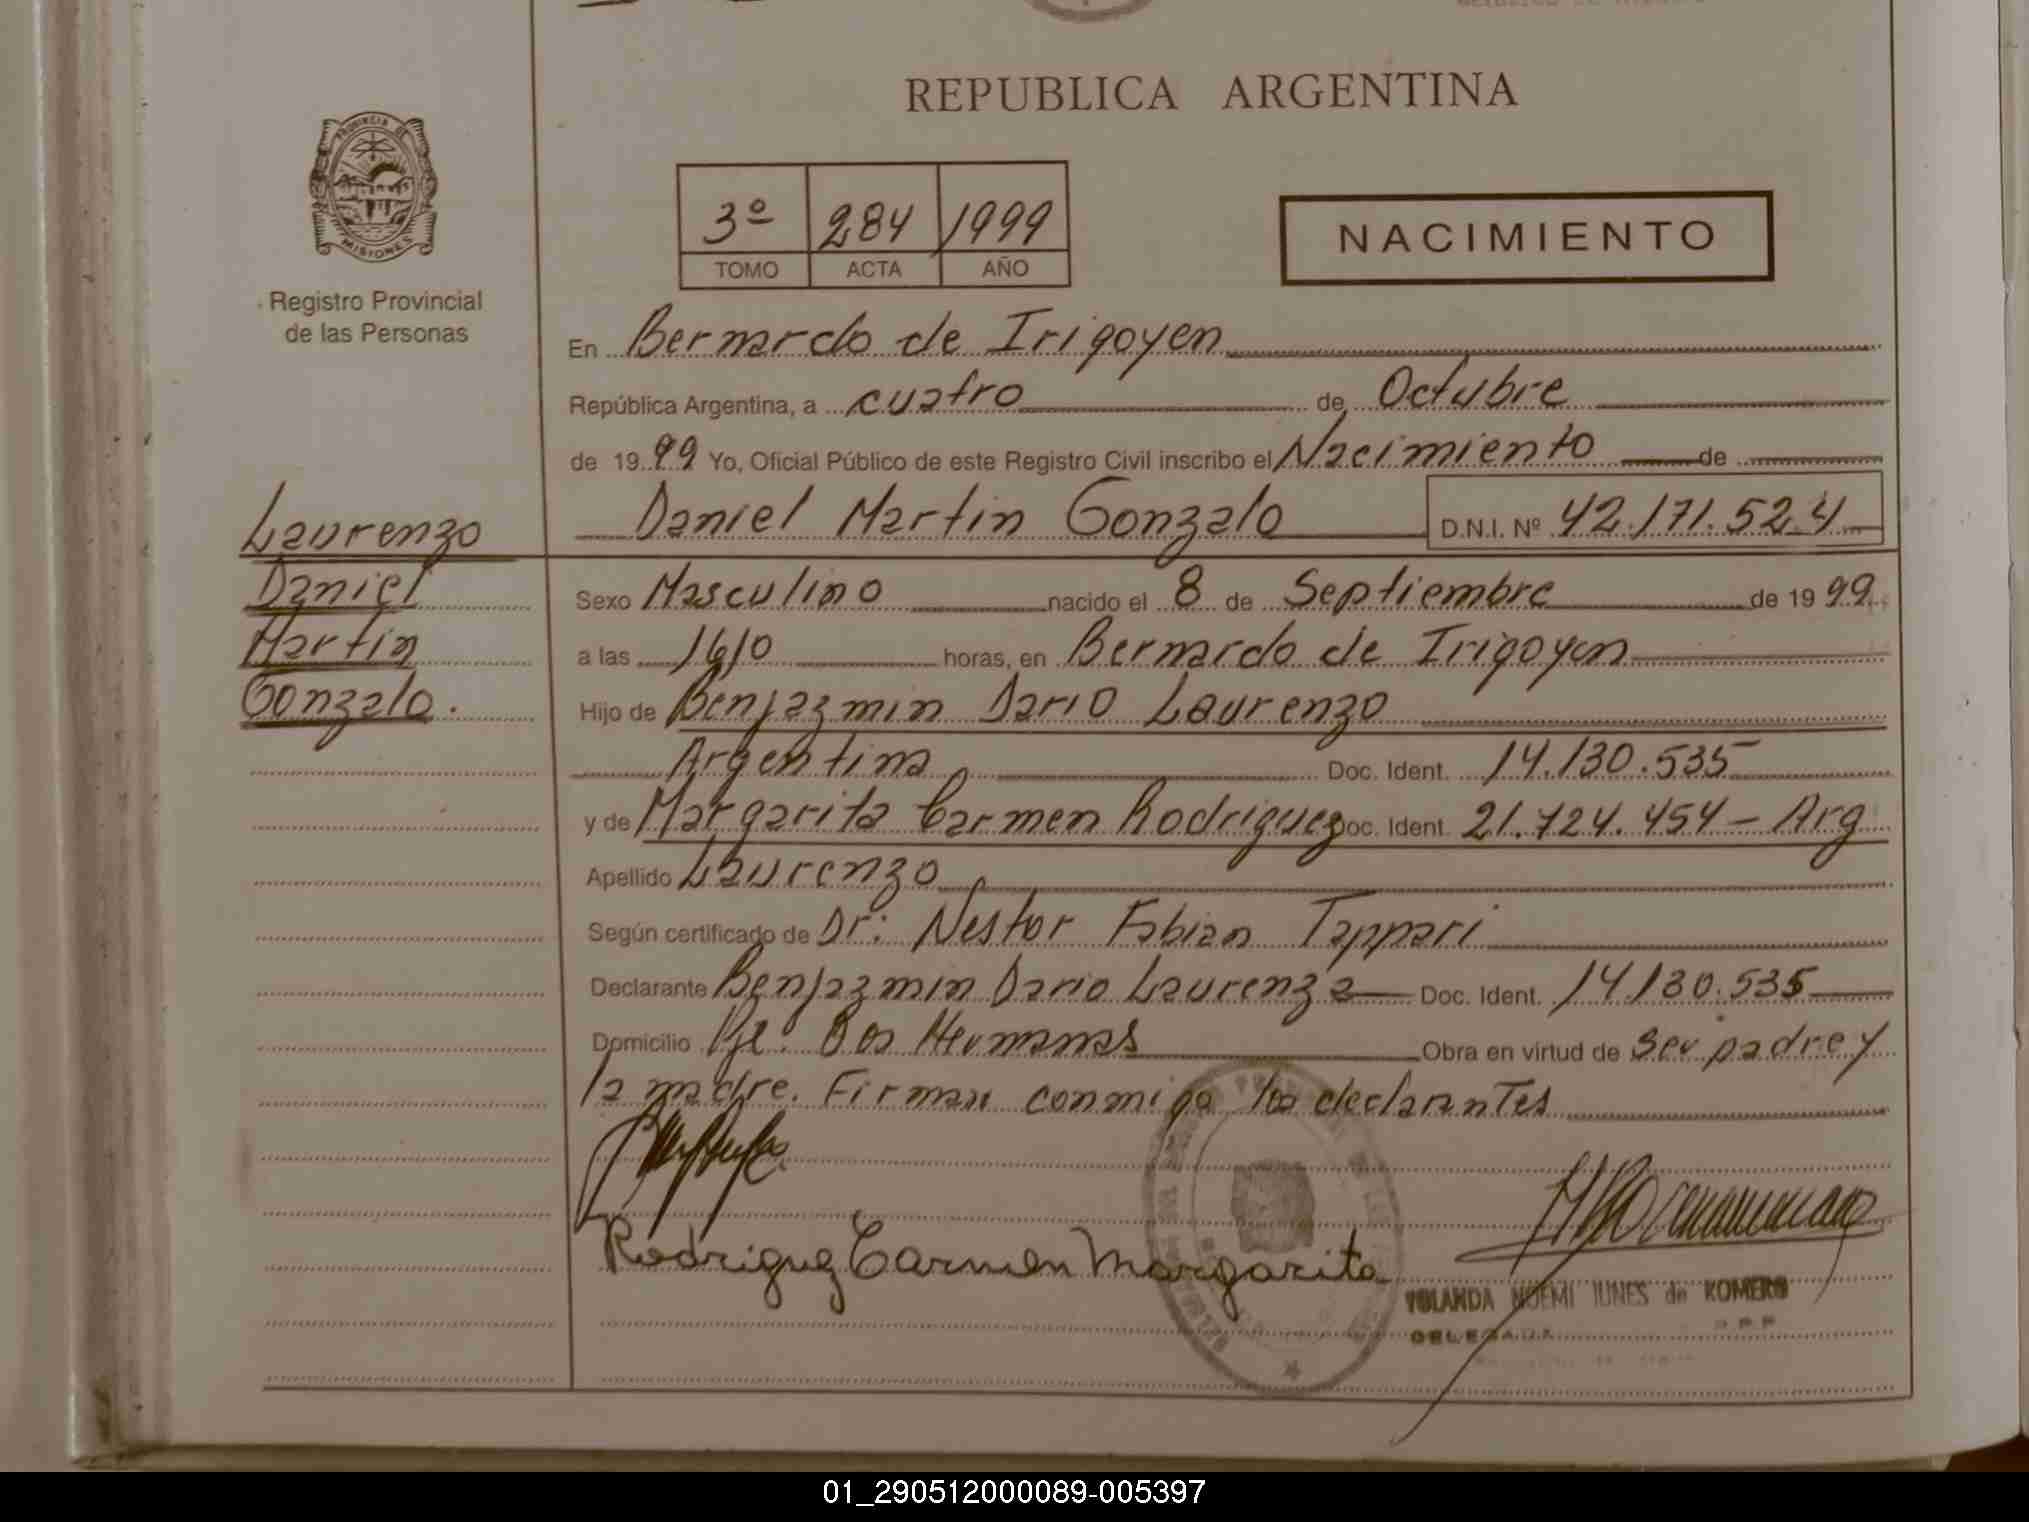 REPUBLICA ARGENTINA
PROVINCIA DE
MISIONES
Registro Provincial
de las Personas
3º 284 1999
TOMO ACTA AÑO
NACIMIENTO
En Bernardo de Irigoyen
República Argentina, a cuatro de Octubre
de 1999 Yo, Oficial Público de este Registro Civil inscribo el Nacimiento de
Daniel Martin Gonzalo D.N.I. Nº 42.171.524
Laurenzo
Daniel
Martin
Gonzalo.
Sexo Masculino nacido el 8 de Septiembre de 1999
a las 1610 horas, en Bernardo de Irigoyen
Hijo de Benjazmin Dario Laurenzo
Argentina Doc. Ident. 14.130.535
y de Margarita Carmen Rodriguez Doc. Ident. 21.724.454 - Arg
Apellido Laurenzo
Según certificado de Dr: Nestor Fabian Tappari
Declarante Benjazmin Dario Laurenza Doc. Ident. 14130.535
Domicilio Pje. Dos Hermanas Obra en virtud de ser padre y
la madre. Firman conmigo los declarantes
Rodriguez Carmen Margarita
YOLANDA NOEMI IUNES de ROMERO
DELEGADA
01_290512000089-005397